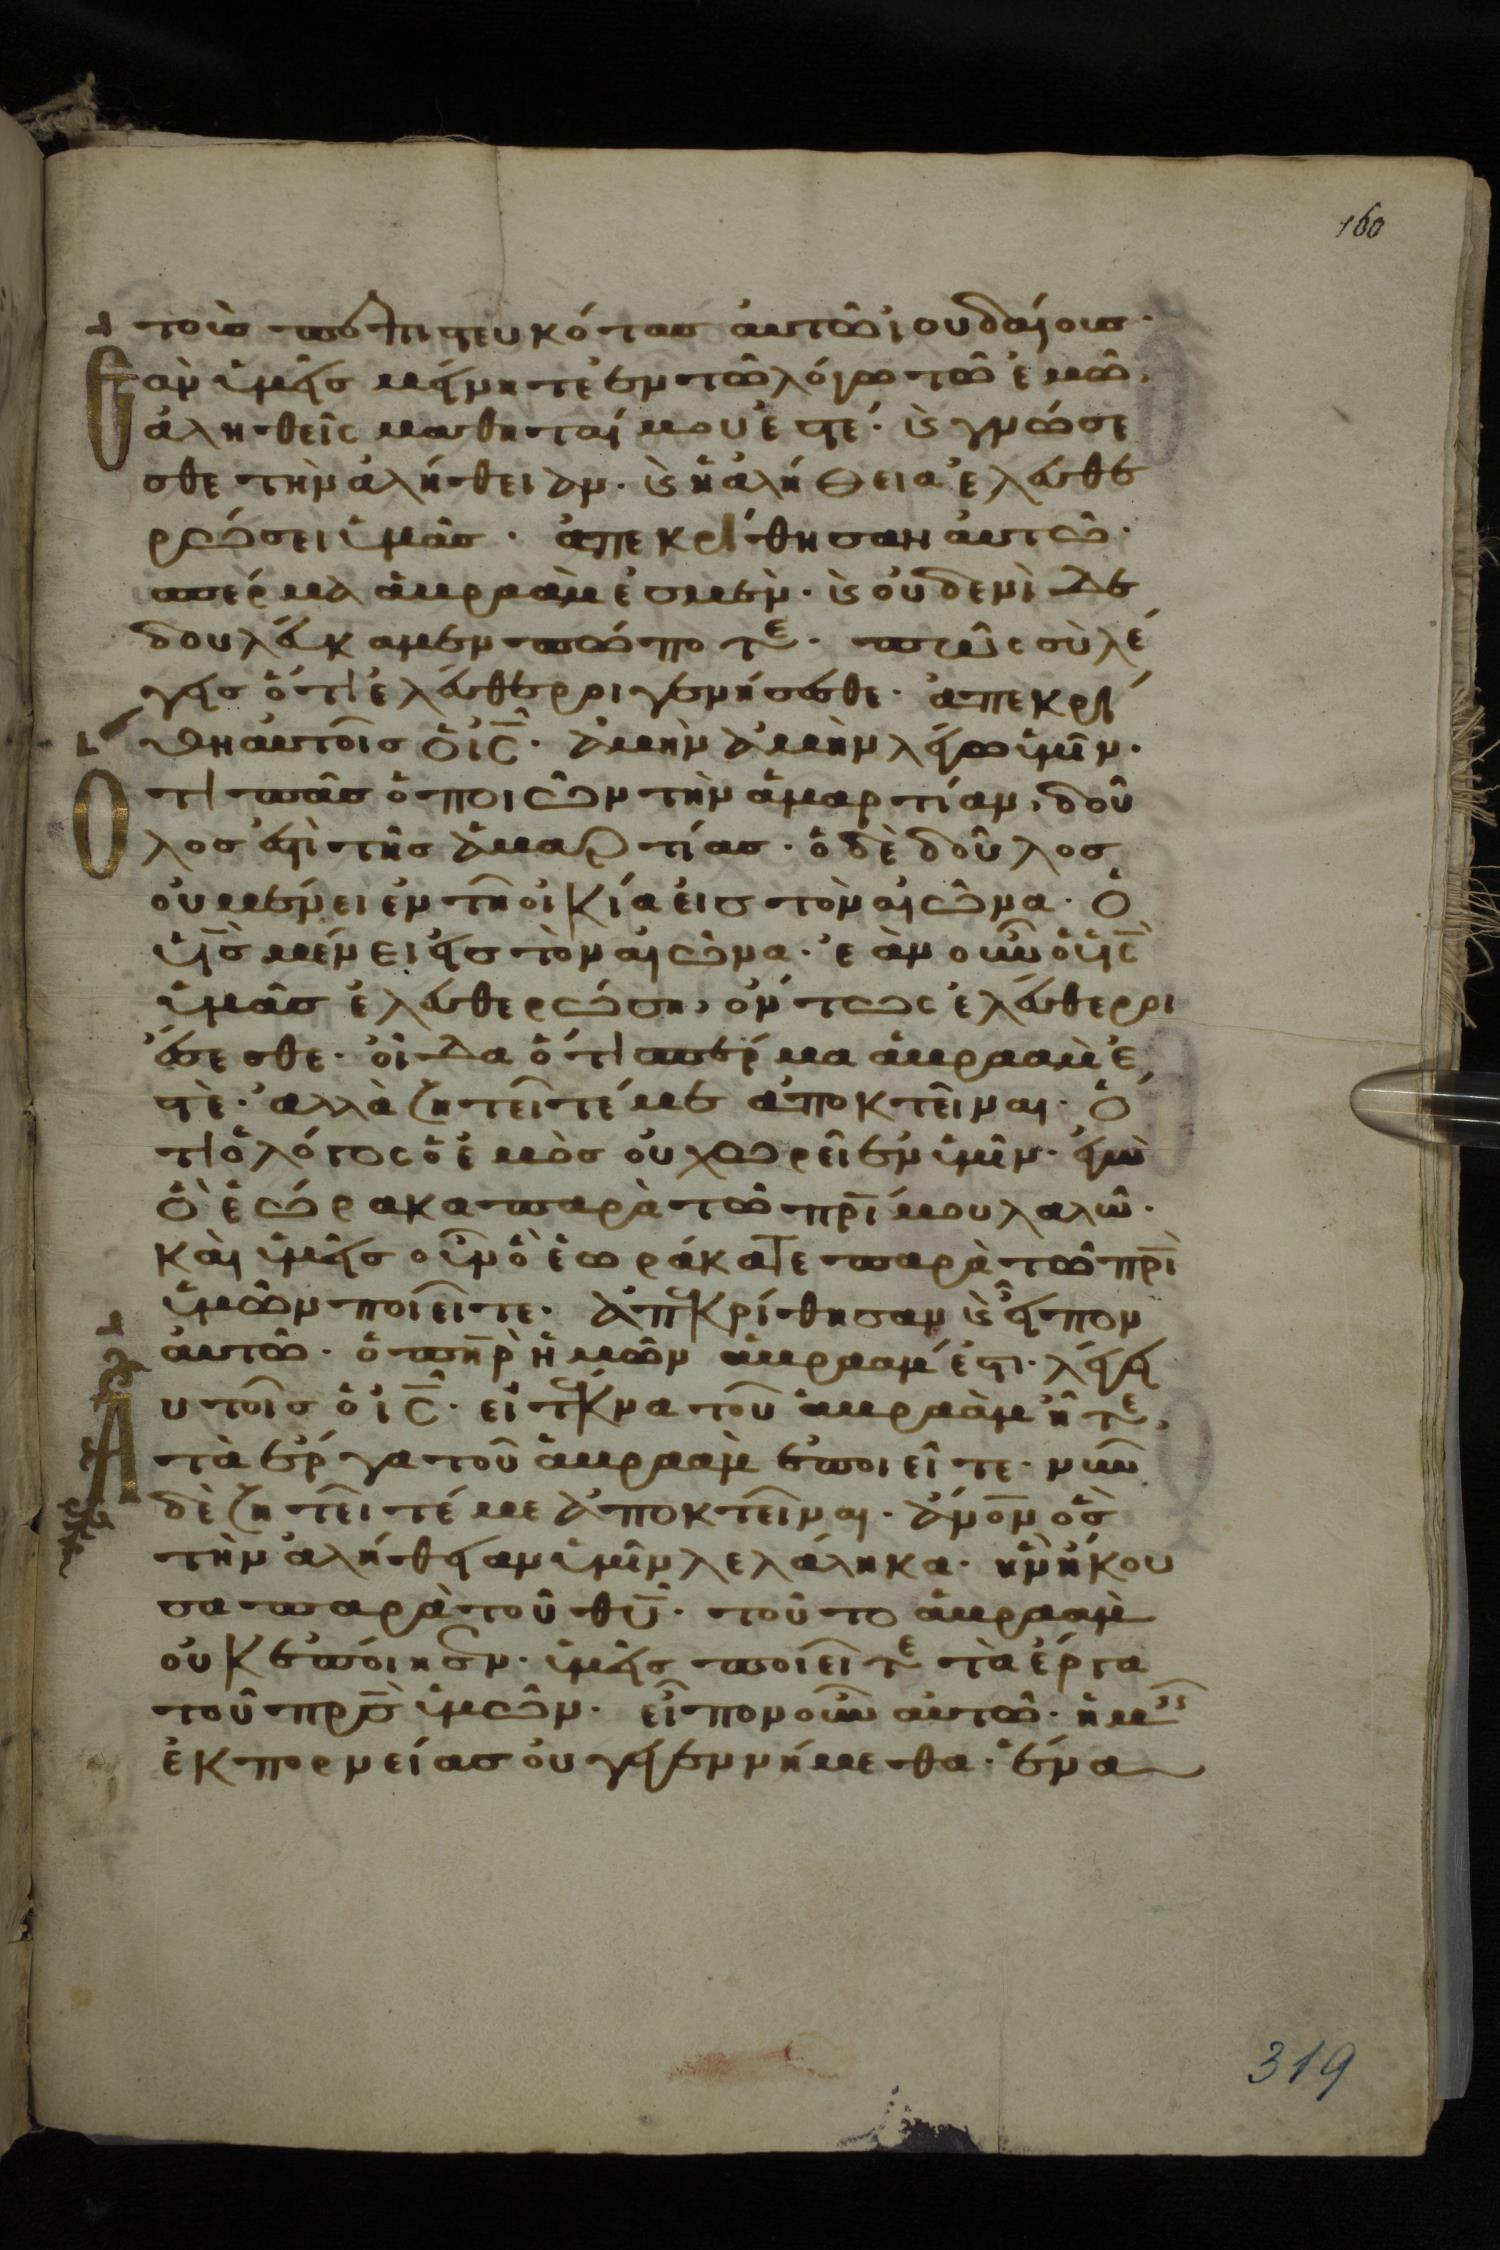 160
τοὺσ πεπιστευκότασ αὐτῶ ἰουδαίουσ·
Ἐὰν ὑμεῖσ μείνητε ἐν τῶ λόγω τῶ ἐμῶ,
ἀληθεῖς μαθηταί μου ἐστέ· ϗ γνώσε
σθε τὴν ἀλήθειαν· ϗ ἡ ἀλήθεια ἐλευθε
ρώσει ὑμᾶσ· ἀπεκρίθησαν αὐτῶ·
σπέρμα ἀβραάμ ἐσμεν· ϗ οὐδενὶ δε
δουλεύκαμεν πώποτε· πῶς σὺ λέ
γεισ ὅτι ἐλεύθεροι γενήσεσθε· ἀπεκρί
θη αὐτοῖσ ὁ ισ̅· ἀμὴν ἀμὴν λέγω ὑμῖν·
Ὅτι πᾶσ ὁ ποιῶν τὴν ἁμαρτίαν, δοῦ
λοσ ἐστὶ τῆσ ἁμαρτίασ· ὁ δὲ δοῦλοσ
οὐ μένει ἐν τῆ οἰκία εἰσ τὸν αἰῶνα· ὁ
υἱὸσ μένει εἰσ τὸν αἰῶνα· ἐὰν οὖν ὁ υἱσ̅
ὑμᾶσ ἐλευθερώση, ὄντως ἐλεύθεροι
ἔσεσθε· οἶδα ὅτι σπέρμα ἀβραάμ ἐ
στὲ· ἀλλὰ ζητεῖτέ με ἀποκτεῖναι· ὅ
τι ὁ λόγος ὁ ἐμὸσ οὐ χωρεῖ ἐν ὑμῖν· ἐγὼ
ὃ ἑώρακα παρὰ τῶ πρι̅ μου λαλῶ·
καὶ ὑμεῖσ οὖν ὃ ἑωράκατε παρὰ τῶ πρι̅
ὑμῶν ποιεῖτε· ἀπεκρίθησαν ϗ εἶπον
αὐτῶ· ὁ πηρ̅ ἡμῶν ἀβραάμ ἐστι· λέγει
Αὐτοῖσ ὁ ισ̅· εἰ τέκνα τοῦ ἀβραὰμ ἦτε,
τὰ ἔργα τοῦ ἀβραὰμ ἐποιεῖτε· νῦν
δὲ ζητεῖτέ με ἀποκτεῖναι· ἀνο̅ν ὃσ
τὴν ἀλήθειαν ὑμῖν λελάληκα· ἣν ἤκου
σα παρὰ τοῦ θυ̅· τοῦτο ἀβραὰμ
οὐκ ἐποίησεν· ὑμεῖσ ποιεῖτε τὰ ἔργα
τοῦ πρσ̅ ὑμῶν· εἶπον οὖν αὐτῶ· ἡμεῖσ
ἐκ πορνείασ οὐ γεγεννήμεθα· ἕνα
319